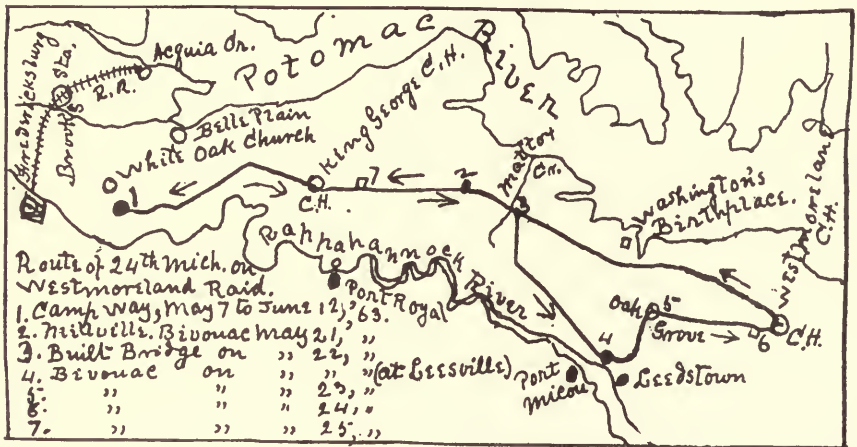 Potomac
River
Acquia Cr.
Fredericksburg
R.R.
Brooks Sta.
Belle Plain
White Oak Church
King George C.H.
C.H.
1
7
2
3
Mattox
Cr.
Washington's
Birthplace.
Westmoreland
C.H.
C.H.
Rappahannock River
Port Royal
Oak
Grove
5
6
4
Leedstown
Port
Micou
Route of 24th Mich. on
Westmoreland Raid.
1. Camp Way, May 7 to June 12, '63.
2. Millville. Bivouac May 21, "
3. Built Bridge on " 22, "
4. Bivouac on " " " (at Leesville)
5. " " " 23, "
6. " " " 24, "
7. " " " 25, "